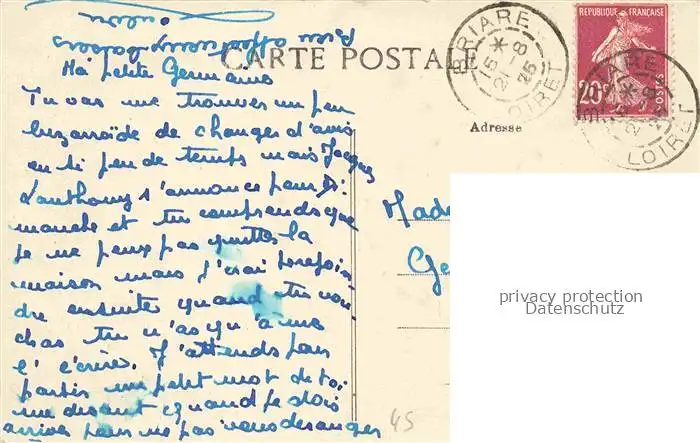 CARTE POSTALE
Ma petite Germaine
Tu vas me trouver un peu
bizarroïde de changer d'avis
en si peu de temps mais Jacques
s'annonce pour Di-
manche et tu comprends que
je ne peux pas quitter la
maison mais j'irai te rejoin-
dre ensuite quand tu vou-
dras tu n'as qu'à me
l'écrire. J'attends pour
partir un petit mot de toi
me disant quand je dois
arriver pour ne pas vous déranger
Bien affectueux baisers
BRIARE
21-8
LOIRET
REPUBLIQUE FRANÇAISE
20c
POSTES
BRIARE
LOIRET
Adresse
Made
Ge
privacy protection
Datenschutz
45